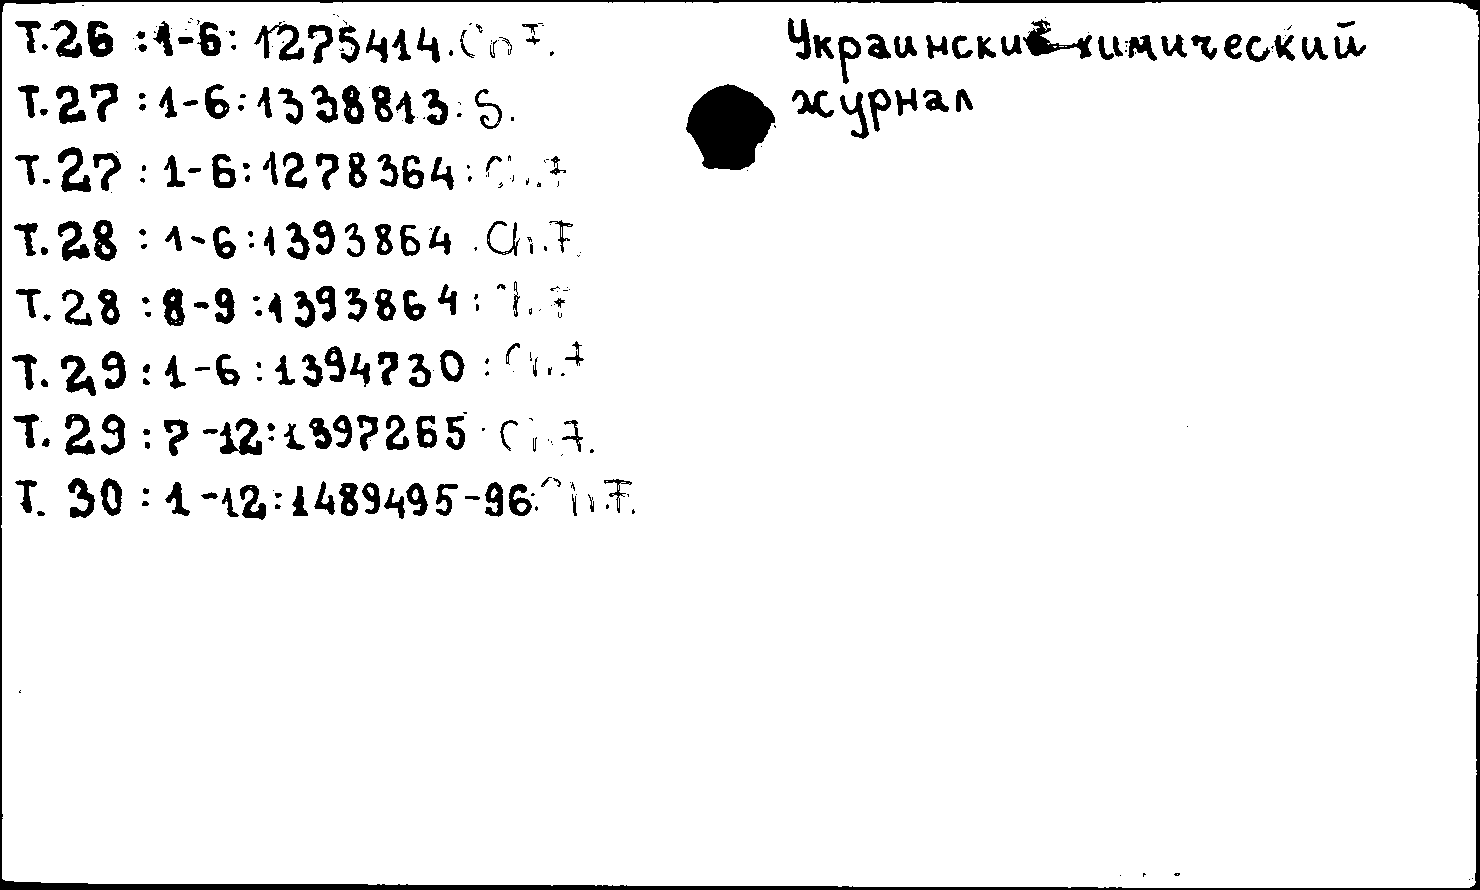 Т.26 :1-6: 1275414.
Т.27 :1-6:1338813: S.
Т.27 : 1-6:1278364: Ch.F
Т.28 : 1-6:1393864 .Ch.F.
Т.28 :8-9 :1393864:
Т.29:1-6:1394730 : Ch.F
Т.29:7-12:1397265
Т. 30:1-12:1489495-96: Ch.F.
Украинский химический
журнал